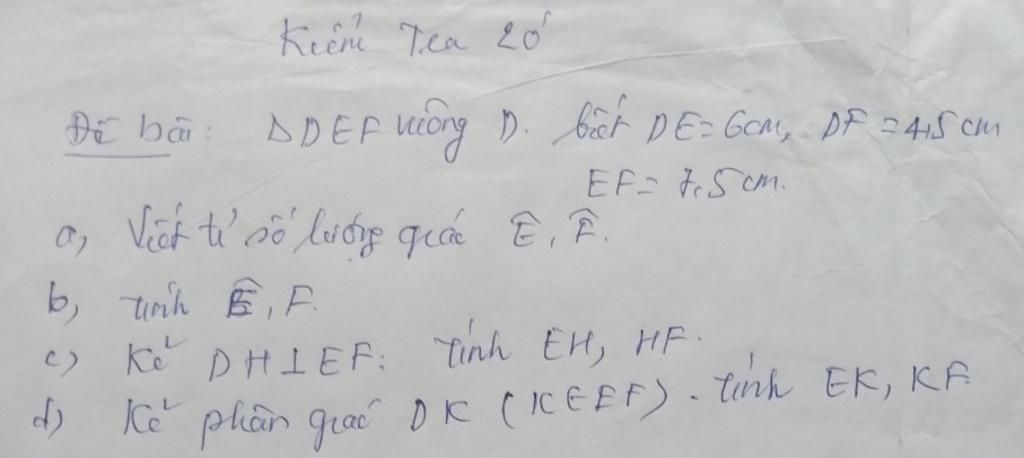 Kiểm Tra Số
Đề bài: ΔDEF vuông D. biết DE = 6cm, DF = 4,5cm
EF = 7,5cm.
a, Viết tỉ số lượng giác Ê, F̂.
b, tính Ê, F.
c) Kẻ DH⊥EF: tính EH, HF.
d) Kẻ phân giác DK (K∈EF). tính EK, KF